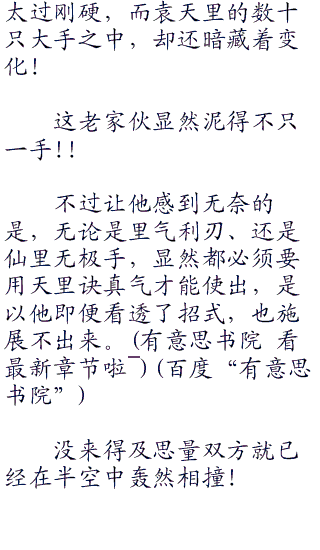 太过刚硬，而袁天里的数十
只大手之中，却还暗藏着变
化！
这老家伙显然泥得不只
一手！！
不过让他感到无奈的
是，无论是里气利刃、还是
仙里无极手，显然都必须要
用天里诀真气才能使出，是
以他即便看透了招式，也施
展不出来。（有意思书院 看
最新章节啦¯）（百度“有意思
书院”）
没来得及思量双方就已
经在半空中轰然相撞！